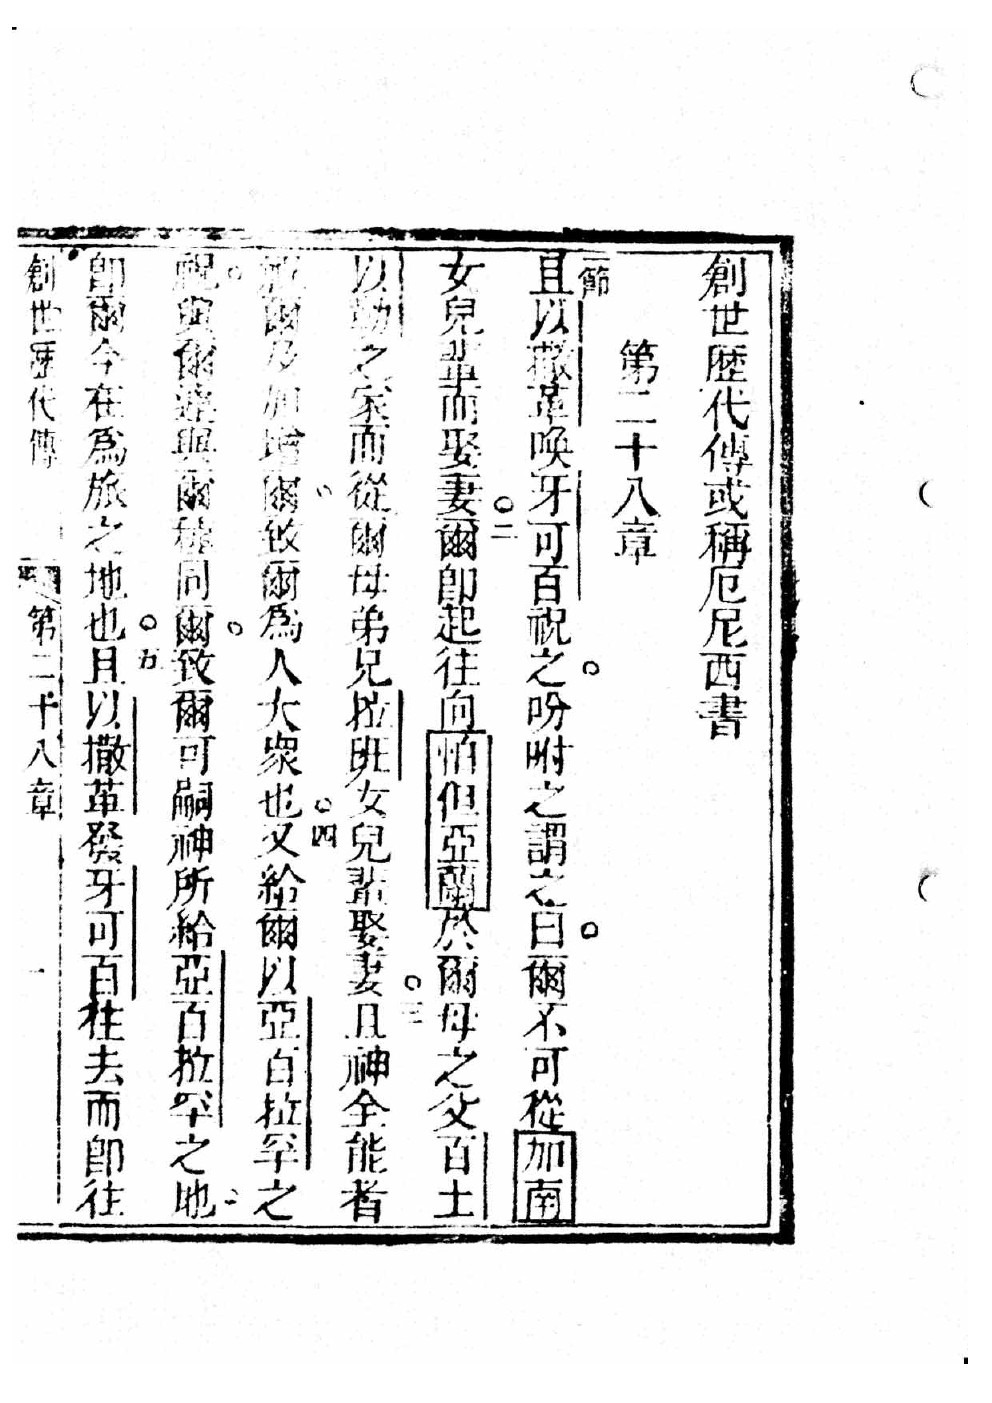 創世歷代傳或稱厄尼西書
第二十八章
一節 且以撒革喚牙可百祝之吩咐之謂之曰爾不可從加南
女兒輩而娶妻二爾卽起往向怕但亞蘭於爾母之父百土
以勒之家而從爾母弟兄拉班女兒輩娶妻三且神全能者
爾及加增爾致爾爲人大衆也四又給爾以亞百拉罕之
祝與爾連與爾種同爾致爾可嗣神所給亞百拉罕之地
卽爾今在爲旅之地也五且以撒革發牙可百徃去而卽往
創世歷代傳 第二十八章 一